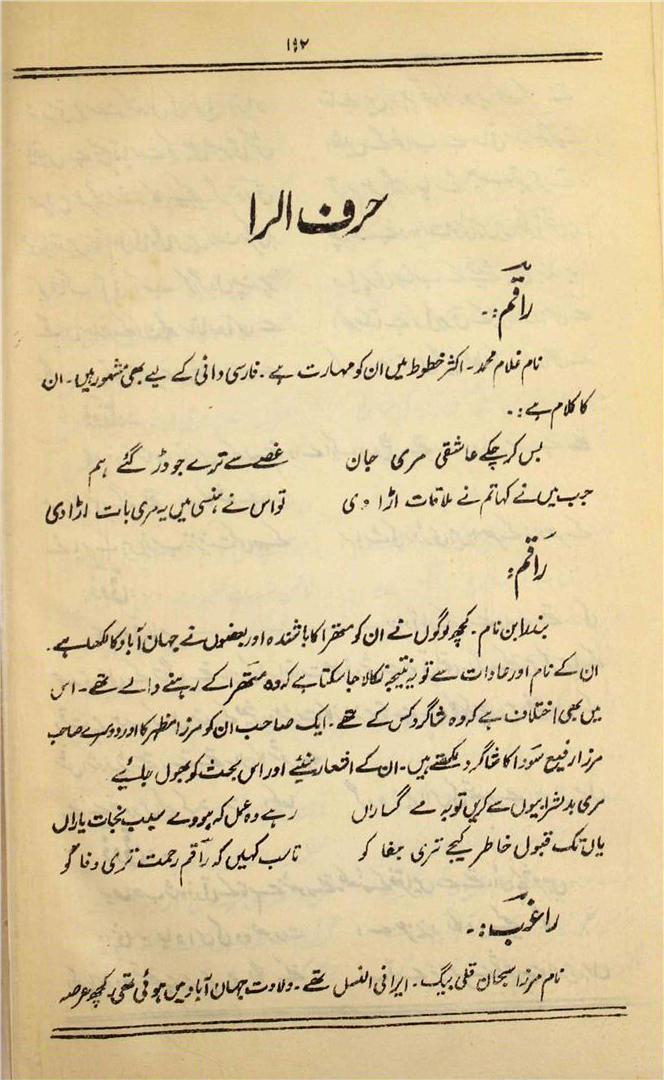 ۱۹۲
حرف الرا
راقم:۔
نام غلام محمد۔ اکثر خطوط میں ان کو مہارت ہے۔ فارسی دانی کے لیے بھی مشہور ہیں۔ ان
کا کلام ہے:۔
بس کر چکے عاشقی مری جان غصے سے ترے جو ڈر گئے ہم
جب میں نے کہا تم نے ملاقات اڑا دی تو اس نے ہنسی میں یہ مری بات اڑا دی
راقم:
بندرابن نام۔ کچھ لوگوں نے ان کو متھرا کا باشندہ اور بعضوں نے جہان آباد کا لکھا ہے۔
ان کے نام اور عادات سے تو یہ نتیجہ نکالا جا سکتا ہے کہ وہ متھرا کے رہنے والے تھے۔ اس
میں بھی اختلاف ہے کہ وہ شاگرد کس کے تھے۔ ایک صاحب ان کو مرزا مظہر کا اور دوسرے صاحب
مرزا رفیع سودا کا شاگرد لکھتے ہیں۔ ان کے اشعار سنیئے اور اس بحث کو بھول جائیے
مری بد شرابیوں سے کریں توبہ مے گساراں رہے وہ عمل کہ ہووے سبب نجات یاراں
یاں تک قبول خاطر کیجے تری جفا کو تا سب کہیں کہ راقم رحمت تری وفا کو
راغب:۔
نام مرزا سبحان قلی بیگ۔ ایرانی النسل تھے۔ ولادت جہان آباد میں ہوئی تھی۔ کچھ عرصہ